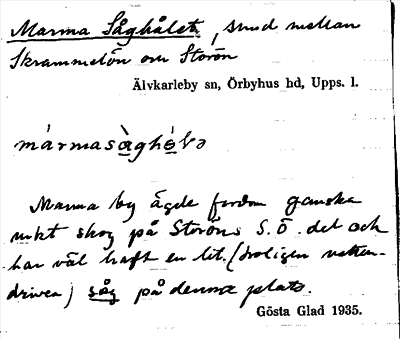 Marma Såghålet, sund mellan
Skrammelön och Storön
Älvkarleby sn, Örbyhus hd, Upps. l.
màrmasàghó̀lə
Marma by ägde fordom ganska
mkt skog på Storöns S.Ö. del och
har väl haft en lit. (troligen vatten-
driven) såg på denna plats.
Gösta Glad 1935.